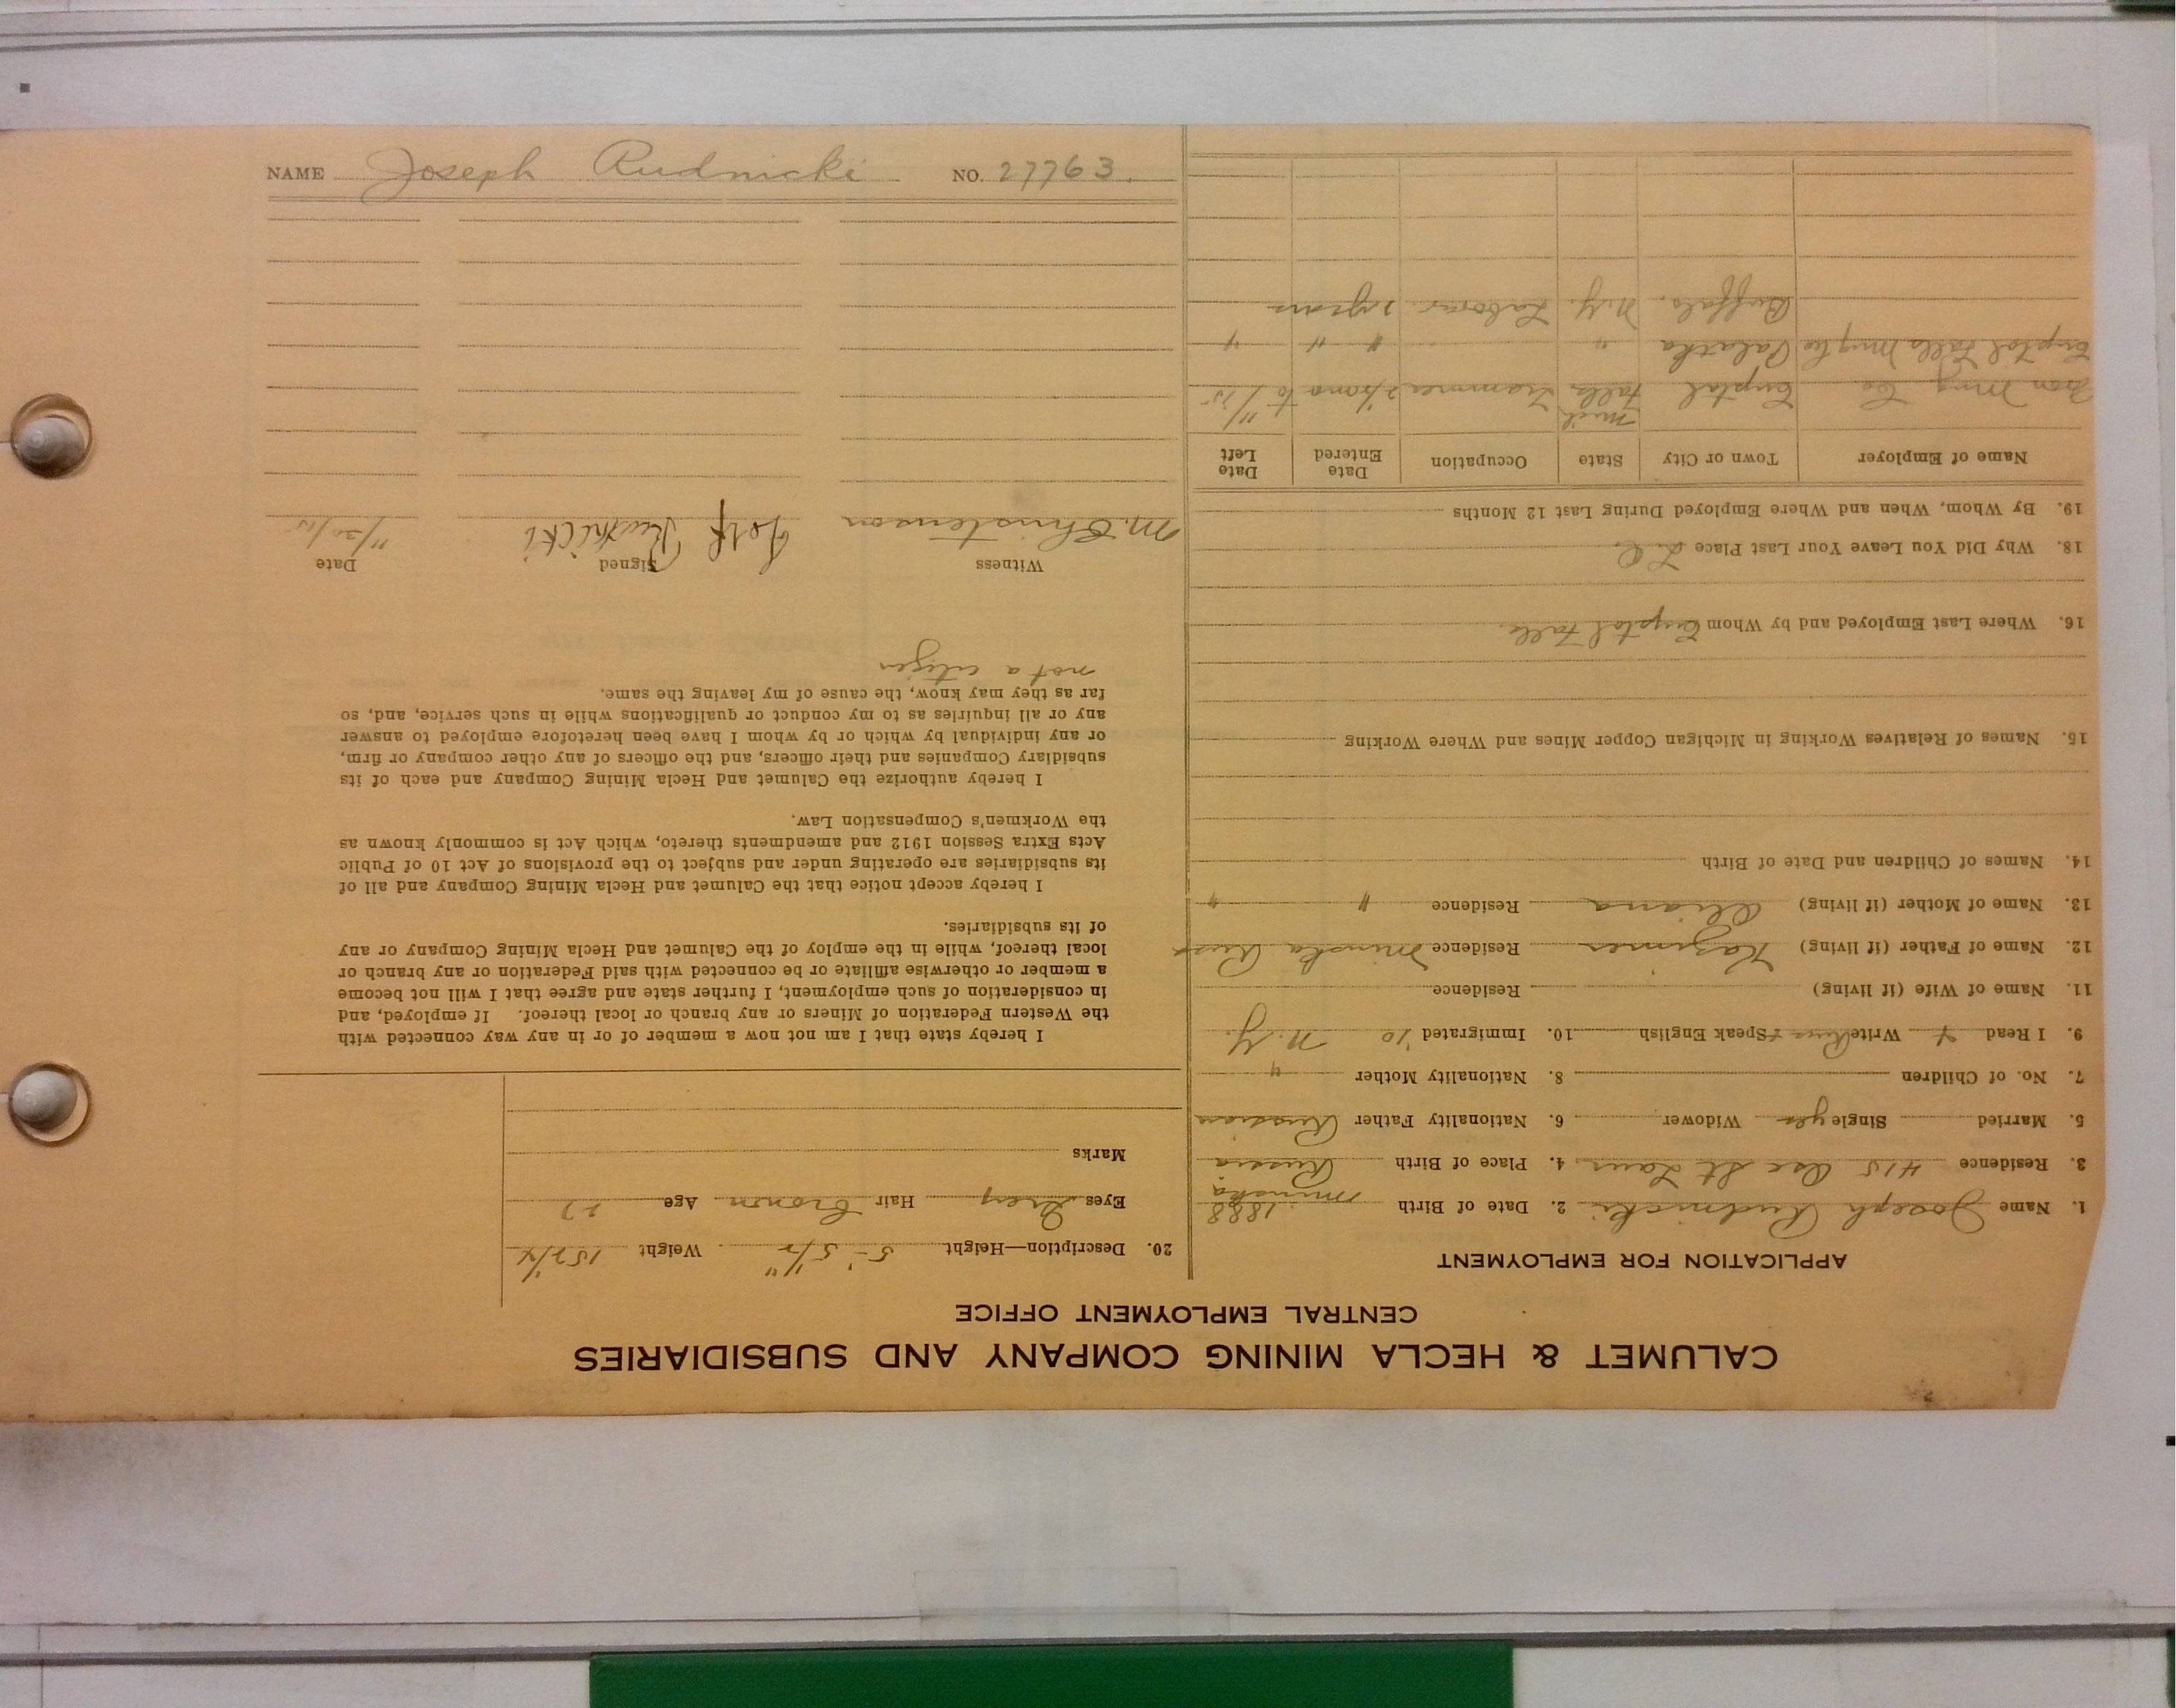 NAME Joseph Rudnicki NO. 27763.
CALUMET & HECLA MINING COMPANY AND SUBSIDIARIES
CENTRAL EMPLOYMENT OFFICE
APPLICATION FOR EMPLOYMENT
1. Name Joseph Rudnicki 2. Date of Birth 1888
3. Residence 415 St 4. Place of Birth Minska Russia
5. Married Single yes Widower 6. Nationality Father Russian
7. No. of Children 8. Nationality Mother "
9. I Read Write Speak English 10. Immigrated '10 N.Y.
11. Name of Wife (if living) Residence
12. Name of Father (if living) Kazimer Residence Minska Russ
13. Name of Mother (if living) Residence " "
14. Names of Children and Date of Birth
15. Names of Relatives Working in Michigan Copper Mines and Where Working
16. Where Last Employed and by Whom Crystal Falls
18. Why Did You Leave Your Last Place
19. By Whom, When and Where Employed During Last 12 Months
Name of Employer Town or City State Occupation Date Entered Date Left
Iron Mng Co Crystal Falls Mich Trammer to 11/15
Crystal Falls Mng Co Palatka " " " "
Buffalo. N.Y. Laborer 2 years
20. Description—Height 5' - 5 1/2" Weight 152 1/4
Eyes Grey Hair Brown Age 27
Marks
I hereby state that I am not now a member of or in any way connected with
the Western Federation of Miners or any branch or local thereof. If employed, and
in consideration of such employment, I further state and agree that I will not become
a member or otherwise affiliate or be connected with said Federation or any branch or
local thereof, while in the employ of the Calumet and Hecla Mining Company or any
of its subsidiaries.
I hereby accept notice that the Calumet and Hecla Mining Company and all of
its subsidiaries are operating under and subject to the provisions of Act 10 of Public
Acts Extra Session 1912 and amendments thereto, which Act is commonly known as
the Workmen's Compensation Law.
I hereby authorize the Calumet and Hecla Mining Company and each of its
subsidiary Companies and their officers, and the officers of any other company or firm,
or any individual by which or by whom I have been heretofore employed to answer
any or all inquiries as to my conduct or qualifications while in such service, and, so
far as they may know, the cause of my leaving the same.
not a citizen
Witness Signed Date
M. Christenson Rudnicki 11/20/15